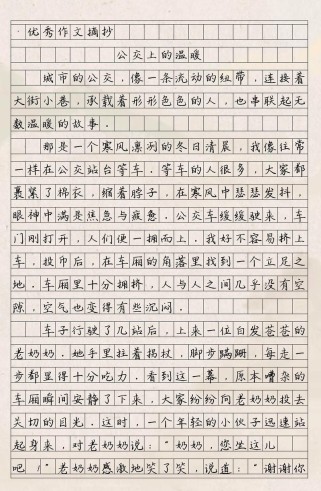 ·优秀作文摘抄
公交上的温暖
城市的公交，像一条流动的纽带，连接着
大街小巷，承载着形形色色的人，也串联起无
数温暖的故事．
那是一个寒风凛冽的冬日清晨，我像往常
一样在公交站台等车．等车的人很多，大家都
裹紧了棉衣，缩着脖子，在寒风中瑟瑟发抖，
眼神中满是焦急与疲惫．公交车缓缓驶来，车
门刚打开，人们便一拥而上．我好不容易挤上
车，投币后，在车厢的角落里找到一个立足之
地．车厢里十分拥挤，人与人之间几乎没有空
隙，空气也变得有些沉闷．
车子行驶了几站后，上来一位白发苍苍的
老奶奶．她手里拄着拐杖，脚步蹒跚，每走一
步都显得十分吃力．看到这一幕，原本嘈杂的
车厢瞬间安静了下来，大家纷纷向老奶奶投去
关切的目光．这时，一个年轻的小伙子迅速站
起身来，对老奶奶说：“奶奶，您坐这儿
吧！”老奶奶感激地笑了笑，说道：“谢谢你